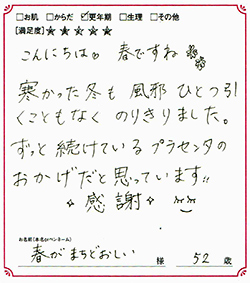 □お肌 □からだ ☑更年期 □生理 □その他
[満足度]★★★★★
こんにちは。春ですね
寒かった冬も 風邪 ひとつ引
くこともなく のりきりました。
ずっと続けているプラセンタの
おかげだと思っています!!
感謝
お名前(本名orペンネーム)
春がまちどおしい 様 52歳